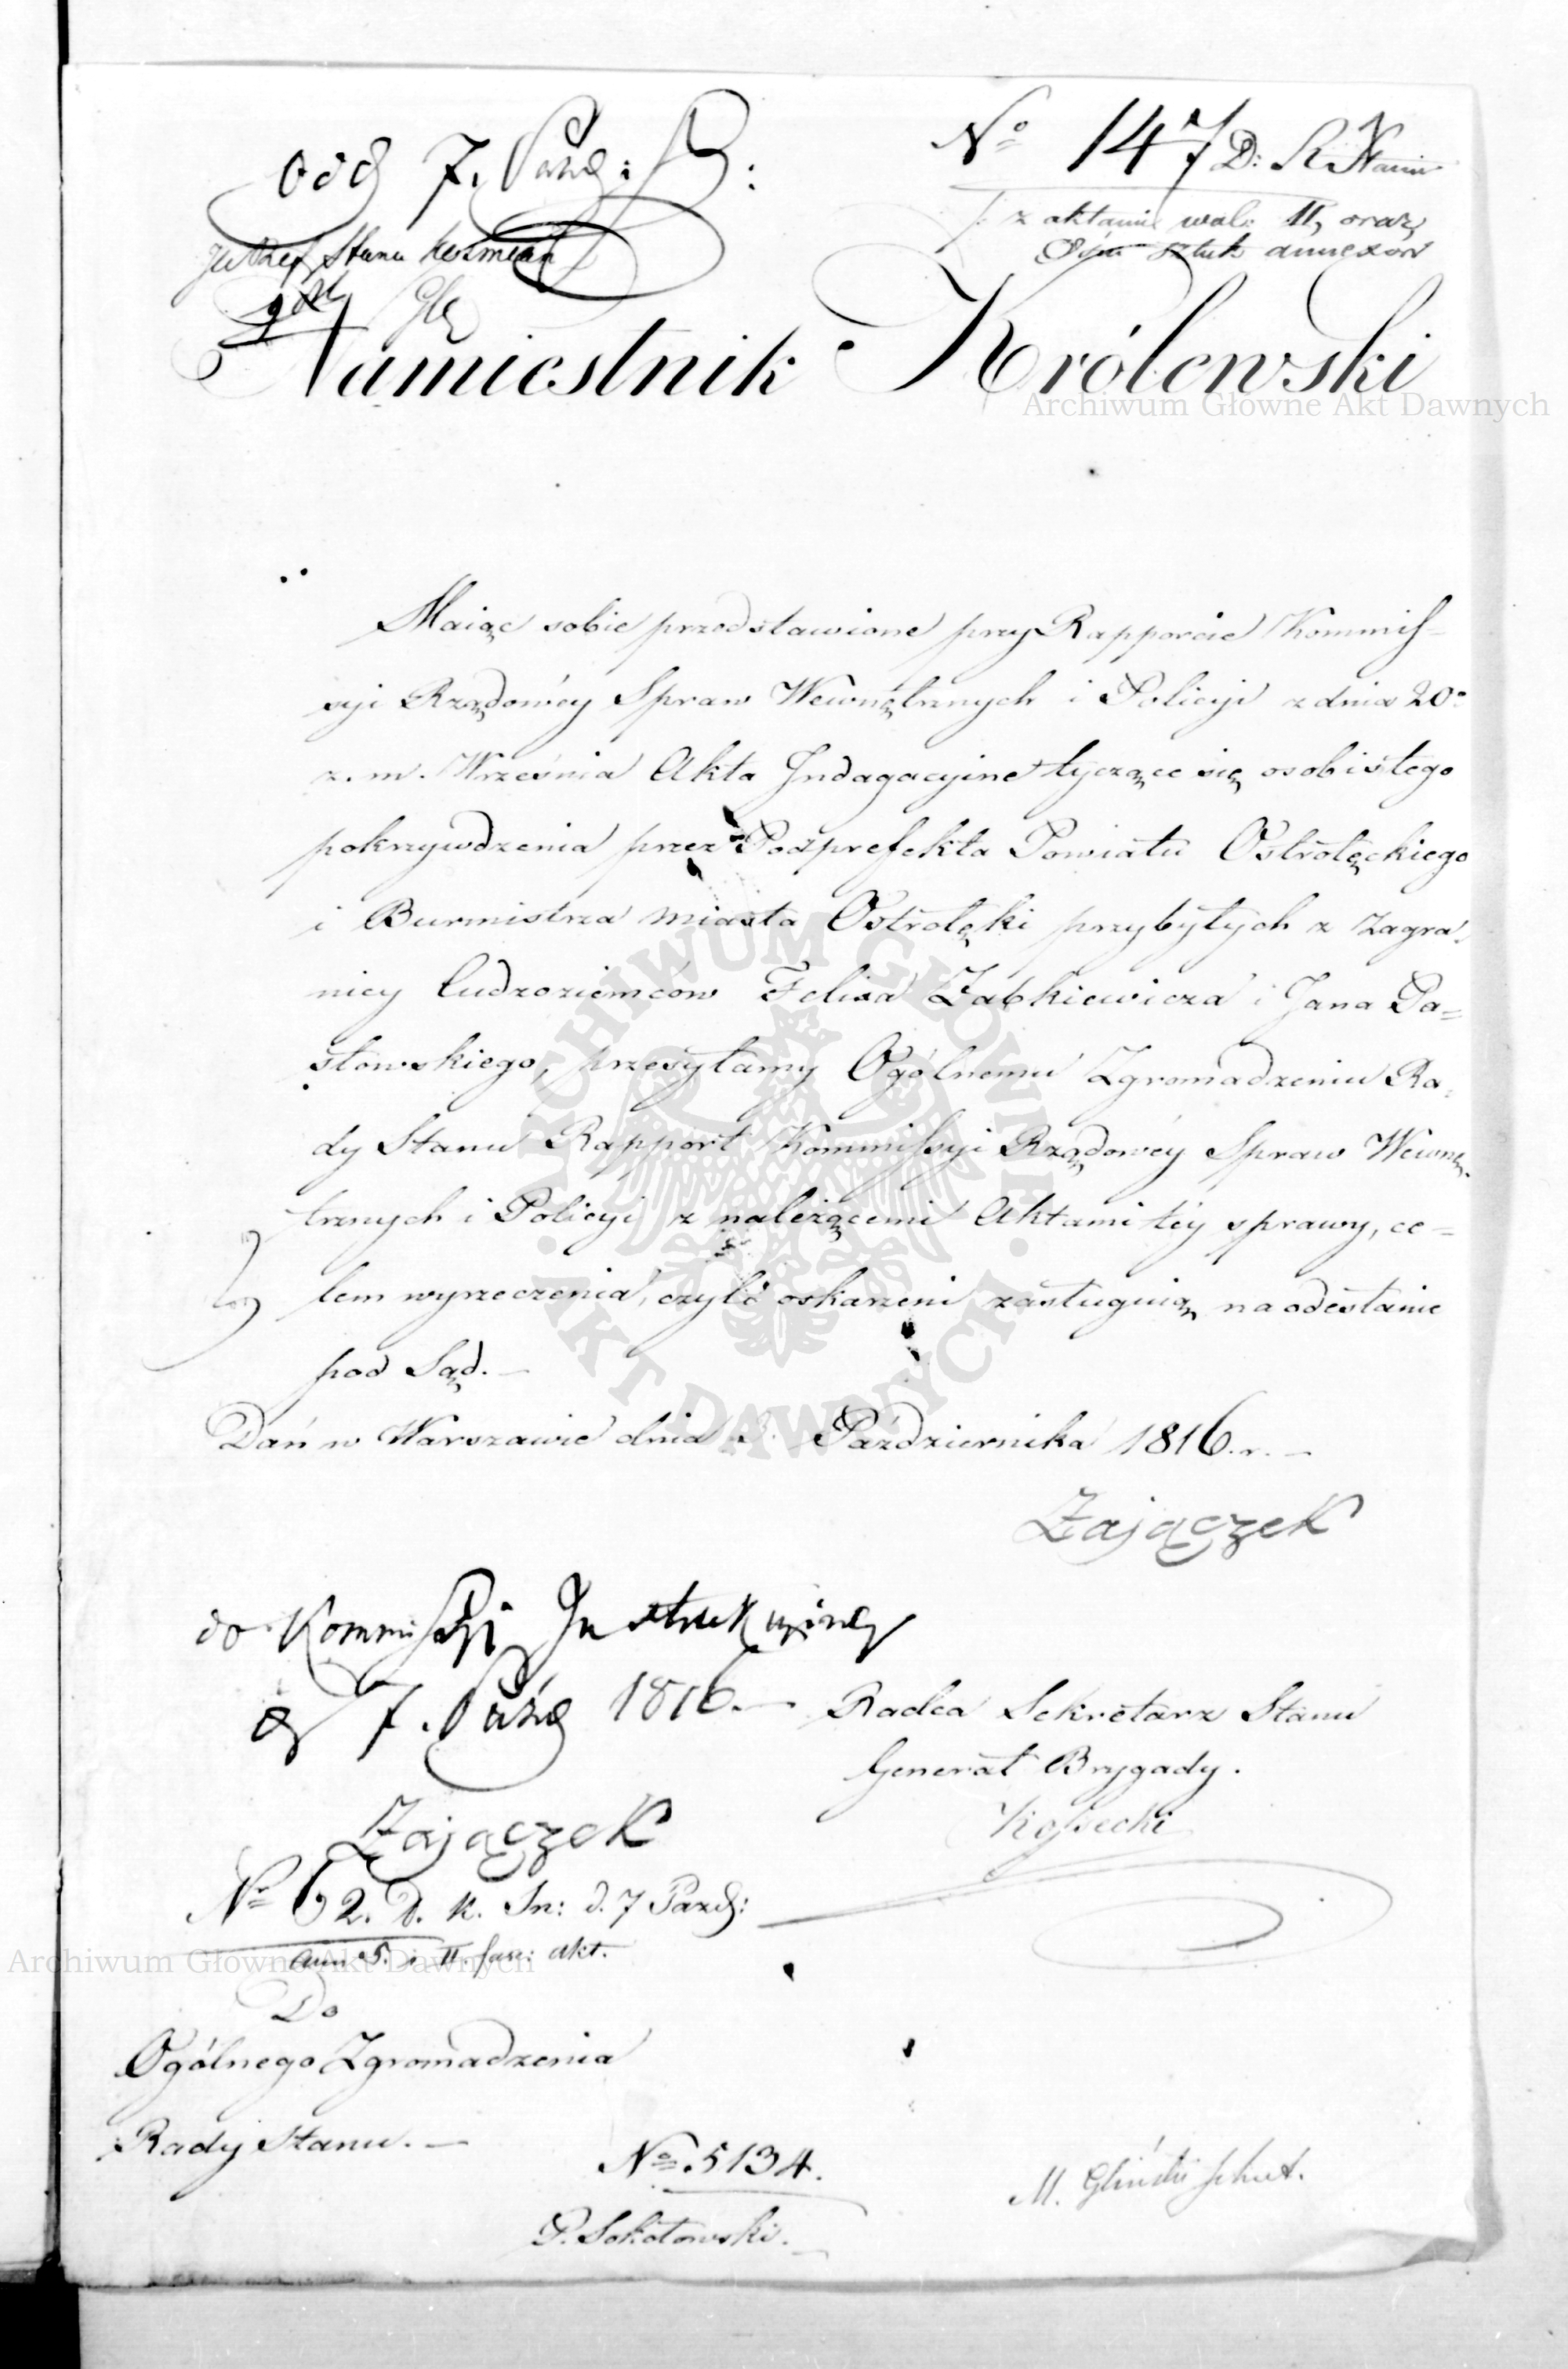 odd 7. Paźd: B:
Referend. Stanu Koźmian
N° 147 D: R Stanu
z aktami wol: II, oraz
Ośm sztuk annexów
Namiestnik Królewski
Archiwum Główne Akt Dawnych
Maiąc sobie przedstawione przy Rapporcie Kommis-
syi Rządowéy Spraw Wewnętrznych i Policyi z dnia 20°
z. m. Września Akta Indagacyine tyczące się osobistego
pokrzywdzenia przez Podprefekta Powiatu Ostrołęckiego
i Burmistrza miasta Ostrołęki przybyłych z zagra-
nicy Cudzoziemców Felixa Ząbkiewicza i Jana Pa-
słowskiego, przesyłamy Ogólnemu Zgromadzeniu Ra-
dy Stanu Rapport Kommissyi Rządowéy Spraw Wewnę-
trznych i Policyi z należącemi Aktami téy sprawy, ce-
lem wyrzeczenia, czyli oskarzeni zasługuią na odesłanie
pod Sąd. —
Dań w Warszawie dnia 3. Października 1816. r. —
Zajączek
do Kommissyi Instrukcyinéy
d 7. Paźd 1816. —
Radca Sekretarz Stanu
Generał Brygady.
Kossecki
Zajączek
N° 62. D. K. In: d. 7 Pazd:
Ann 5. i II. fasc: akt.
Archiwum Główne Akt Dawnych
Do
Ogólnego Zgromadzenia
Rady Stanu. —
N° 5134.
P. Sokołowski. —
M. Gliński
ARCHIWUM GŁÓWNE · AKT DAWNYCH ·